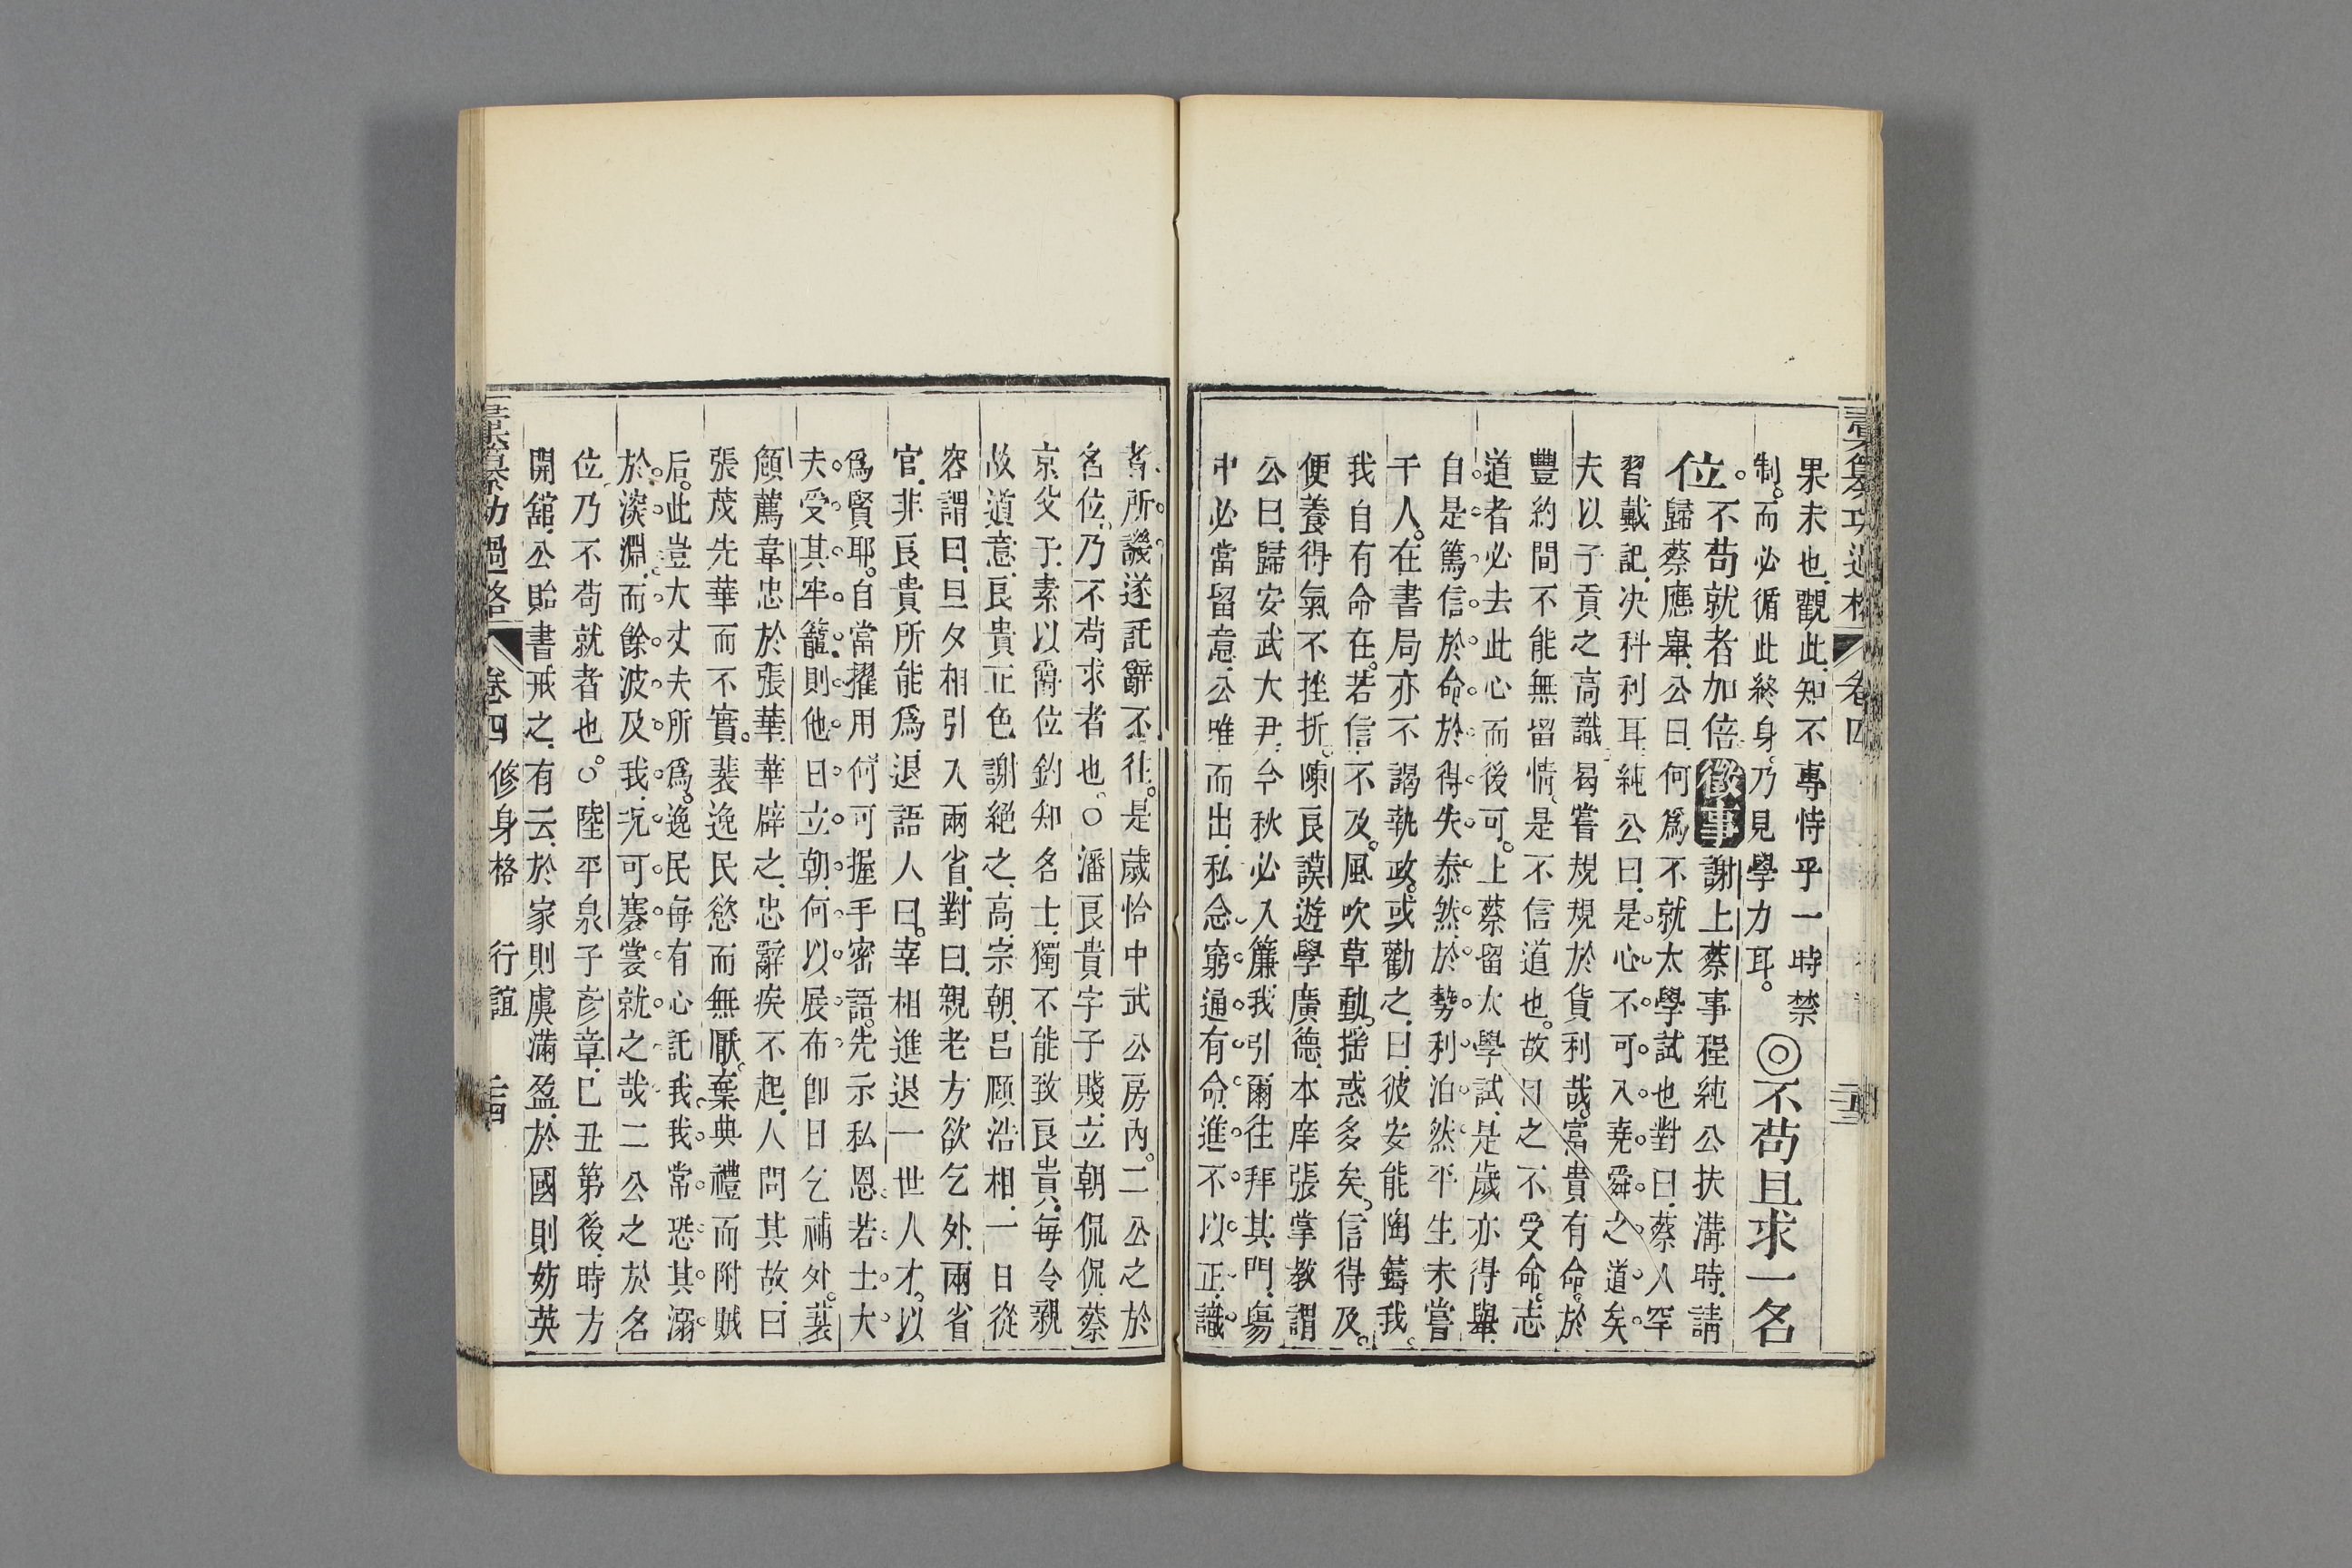 果未也觀此知不專恃乎一時禁
制而必循此終身乃見學力耳。◎不苟且求一名
位。不苟就者加倍徵事謝上蔡事程純公扶溝時請
歸蔡應舉公曰何爲不就太學試也對曰蔡人罕
習戴記决科利耳純公曰是心不可入堯舜之道矣
夫以子貢之高識曷嘗規規於貨利哉富貴有命於
豐約間不能無留情是不信道也故曰之不受命志
道者必去此心而後可上蔡留太學試是歲亦得舉
自是篤信於命於得失泰然於勢利泊然平生未嘗
干人在書局亦不謁執政或勸之曰彼安能陶鑄我
我自有命在若信不及風吹草動搖惑多矣信得及
便養得氣不挫折陳良謨遊學廣德本庠張掌教謂
公曰歸安武大尹今秋必入簾我引爾往拜其門場
中必當留意公唯而出私念窮通有命進不以正識
者所譏遂託辭不往是歲恰中武公房內二公之於
名位乃不苟求者也○潘良貴字子賤立朝侃侃蔡
京父子素以爵位釣知名士獨不能致良貴每令親
故道意良貴正色謝絕之高宗朝呂頤浩相一日從
容謂曰旦夕相引入兩省對曰親老方欲乞外兩省
官非良貴所能爲退語人曰宰相進退一世人才以
爲賢耶自當擢用何可握手密語先示私恩若士大
夫受其牢籠則他日立朝何以展布卽日乞補外裴
頠薦韋忠於張華華辟之忠辭疾不起人問其故曰
張茂先華而不實裴逸民慾而無厭棄典禮而附賊
后此豈大丈夫所爲逸民每有心託我我常恐其溺
於深淵而餘波及我况可褰裳就之哉二公之於名
位乃不苟就者也。○陸平泉子彥章已丑第後時方
開舘公貽書戒之有云於家則虞滿盈於國則妨英
彚纂功過格 卷四 修身格 行誼